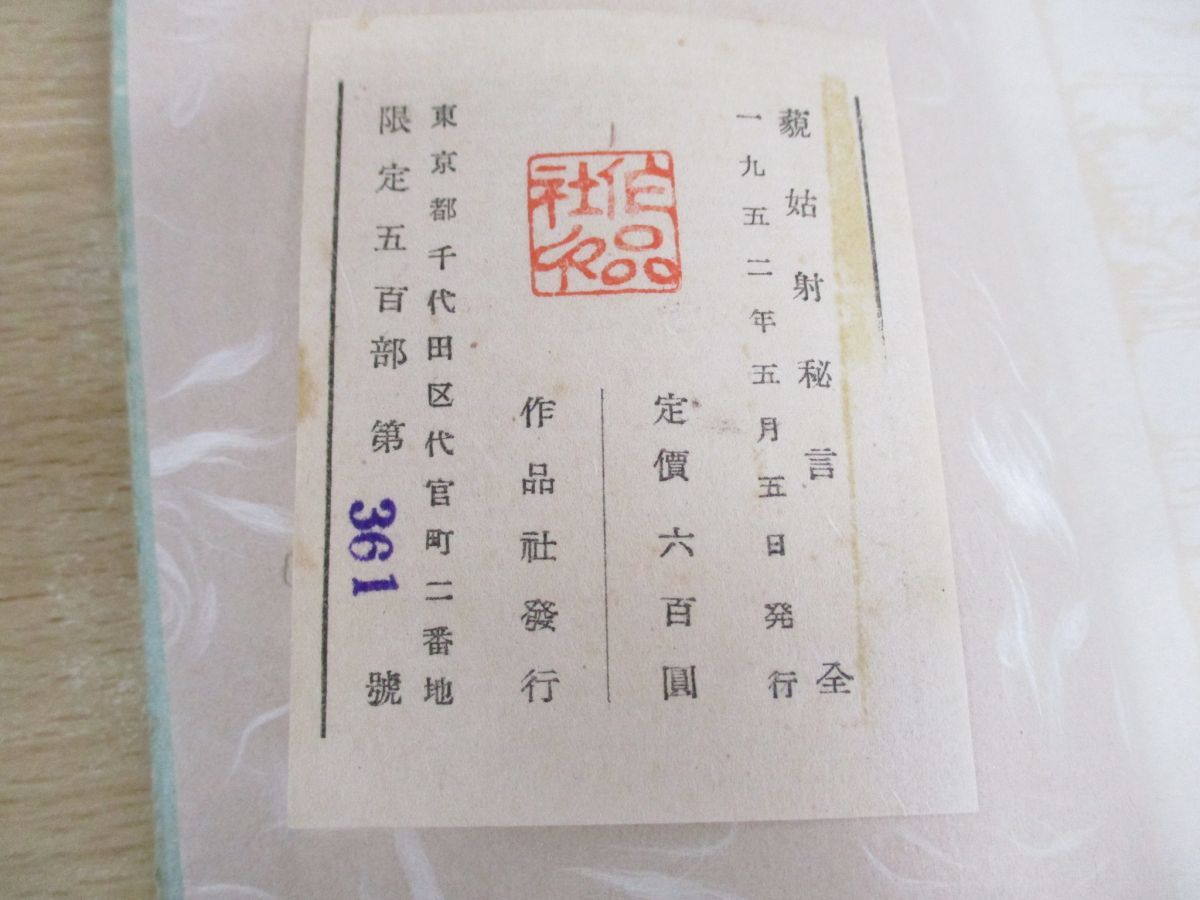 藐姑射秘言 全
一九五二年五月五日発行
定價六百圓
作品社
作品社發行
東京都千代田区代官町二番地
限定五百部第361號